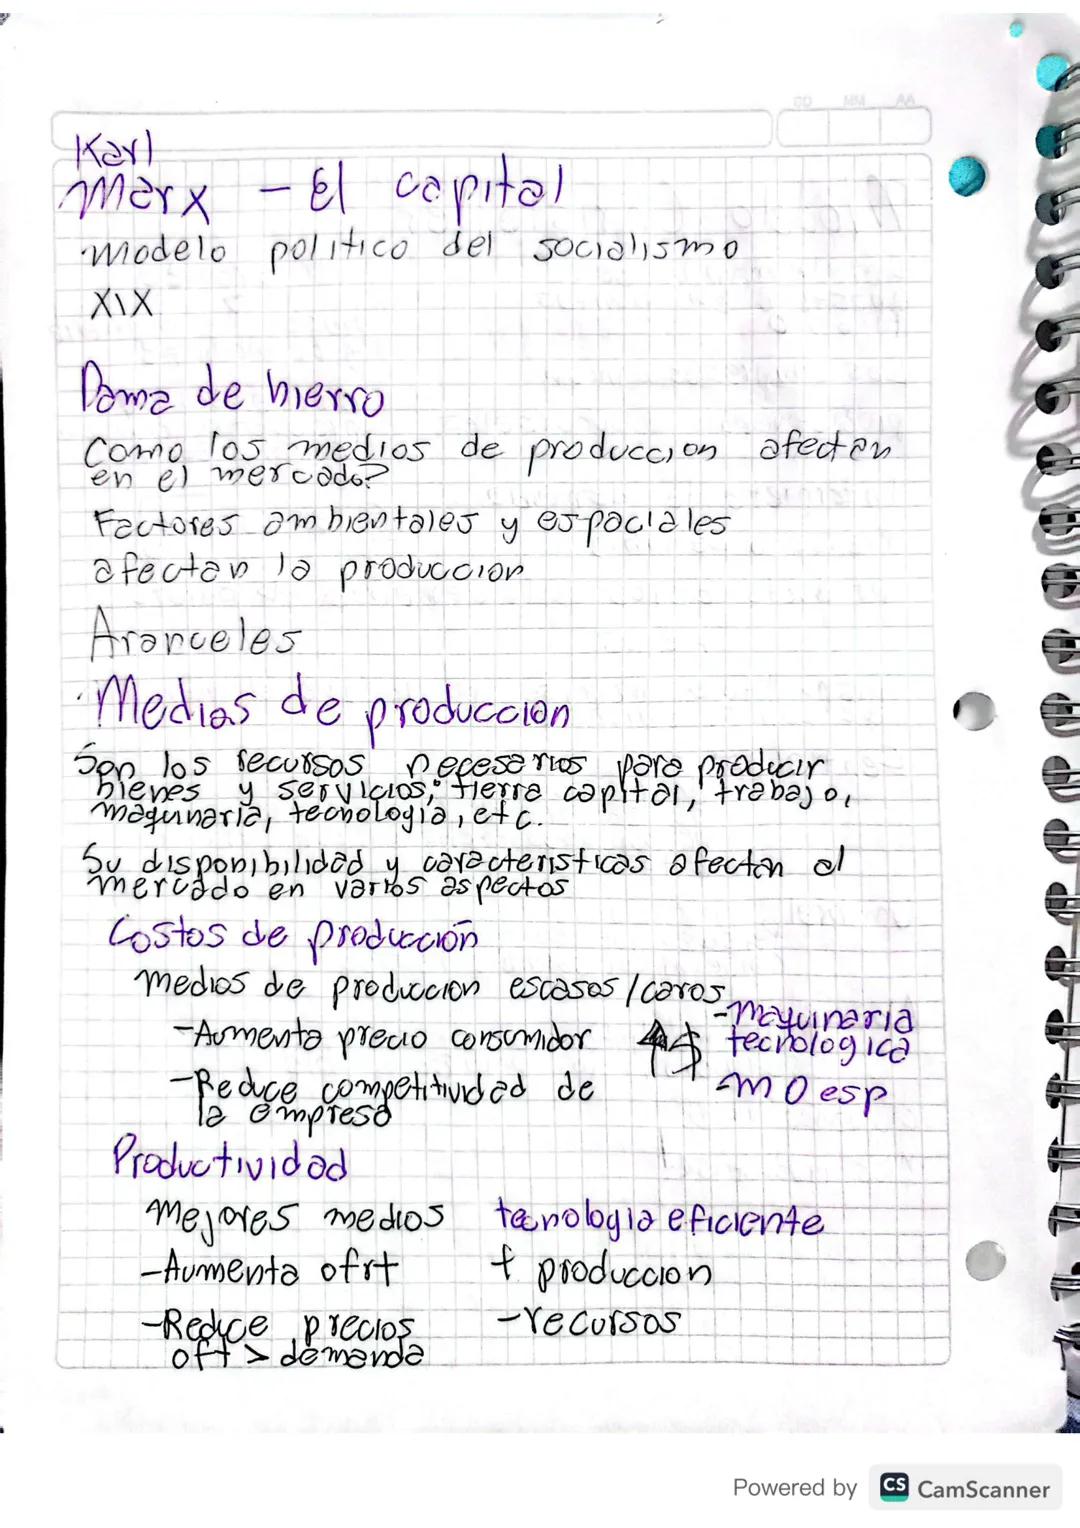 DD MM AA
Karl
Marx - El capital
·Modelo politico del socialismo
XIX
Dama de hierro
Como los medios de produccion afectan
en el mercado?
Factores ambientales y espaciales
afectan la produccion
Aranceles
·Medios de produccion
Son los recursos necesarios para producir
bienes y servicios; tierra capital, trabajo,
maquinaria, tecnologia, etc.
Su disponibilidad y caracteristicas afectan al
mercado en varios aspectos
Costos de producción
Medios de produccion escasos / caros
-Aumenta precio consumidor
-Reduce competitividad de
la empresa
$
-Maquinaria
tecnologica
-M O esp
Productividad
Mejores medios tecnologia eficiente
-Aumenta ofrt + produccion
-Reduce precios -recursos
oft > demanda
Powered by CS CamScanner